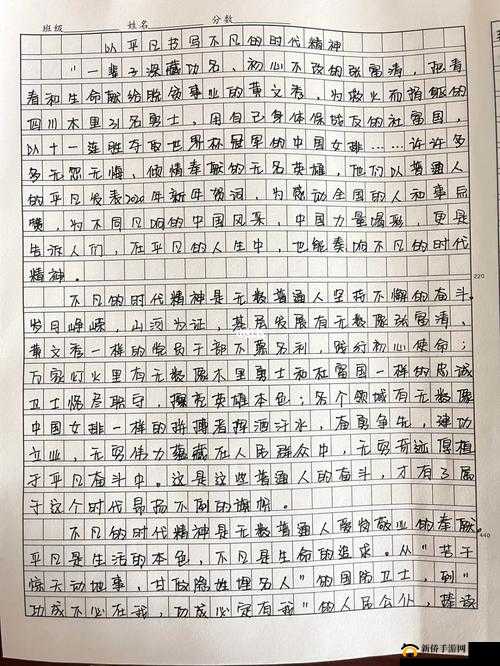 班级 姓名 分数
以平凡书写不凡的时代精神
"一辈子深藏功名、初心不改的张富清，把青
春和生命献给脱贫事业的黄文秀，为救火而牺牲的
四川木里31名勇士，用自己身体保战友的杜富国，
以十一连胜夺取世界杯冠军的中国女排……许许多
多无怨无悔、倾情奉献的无名英雄，他们以普通人
的平凡发表2020年新年贺词，为感动全国的人和事点
赞，为不同凡响的中国风采，中国力量喝彩，更是
告诉人们，在平凡的人生中，也能奏响不凡的时代
精神。
220
不凡的时代精神是无数普通人坚持不懈的奋斗。
岁月峥嵘，山河为证，基层发展有无数像张富清、
黄文秀一样的党员干部不慕名利，践行初心使命；
万家灯火里有无数像木里勇士和杜富国一样的忠诚
卫士恪尽职守，擦亮英雄本色；各个领域有无数像
中国女排一样的拼搏者挥洒汗水，奋勇争先，建功
立业，无穷伟力蕴藏在人民群众中，无穷奇迹
于平凡奋斗中。这是这些普通人的奋斗，才有了属
于这个时代昂扬不倒的旗帜。
不凡的时代精神是无数普通人爱岗敬业的奉献。
440
平凡是生活的本色，不凡是生命的追求。从"苦干
惊天动地事，甘做隐姓埋名人"的国防卫士，到"
功成不必在我，功成必定有我"的人民公仆，
新侨手游网